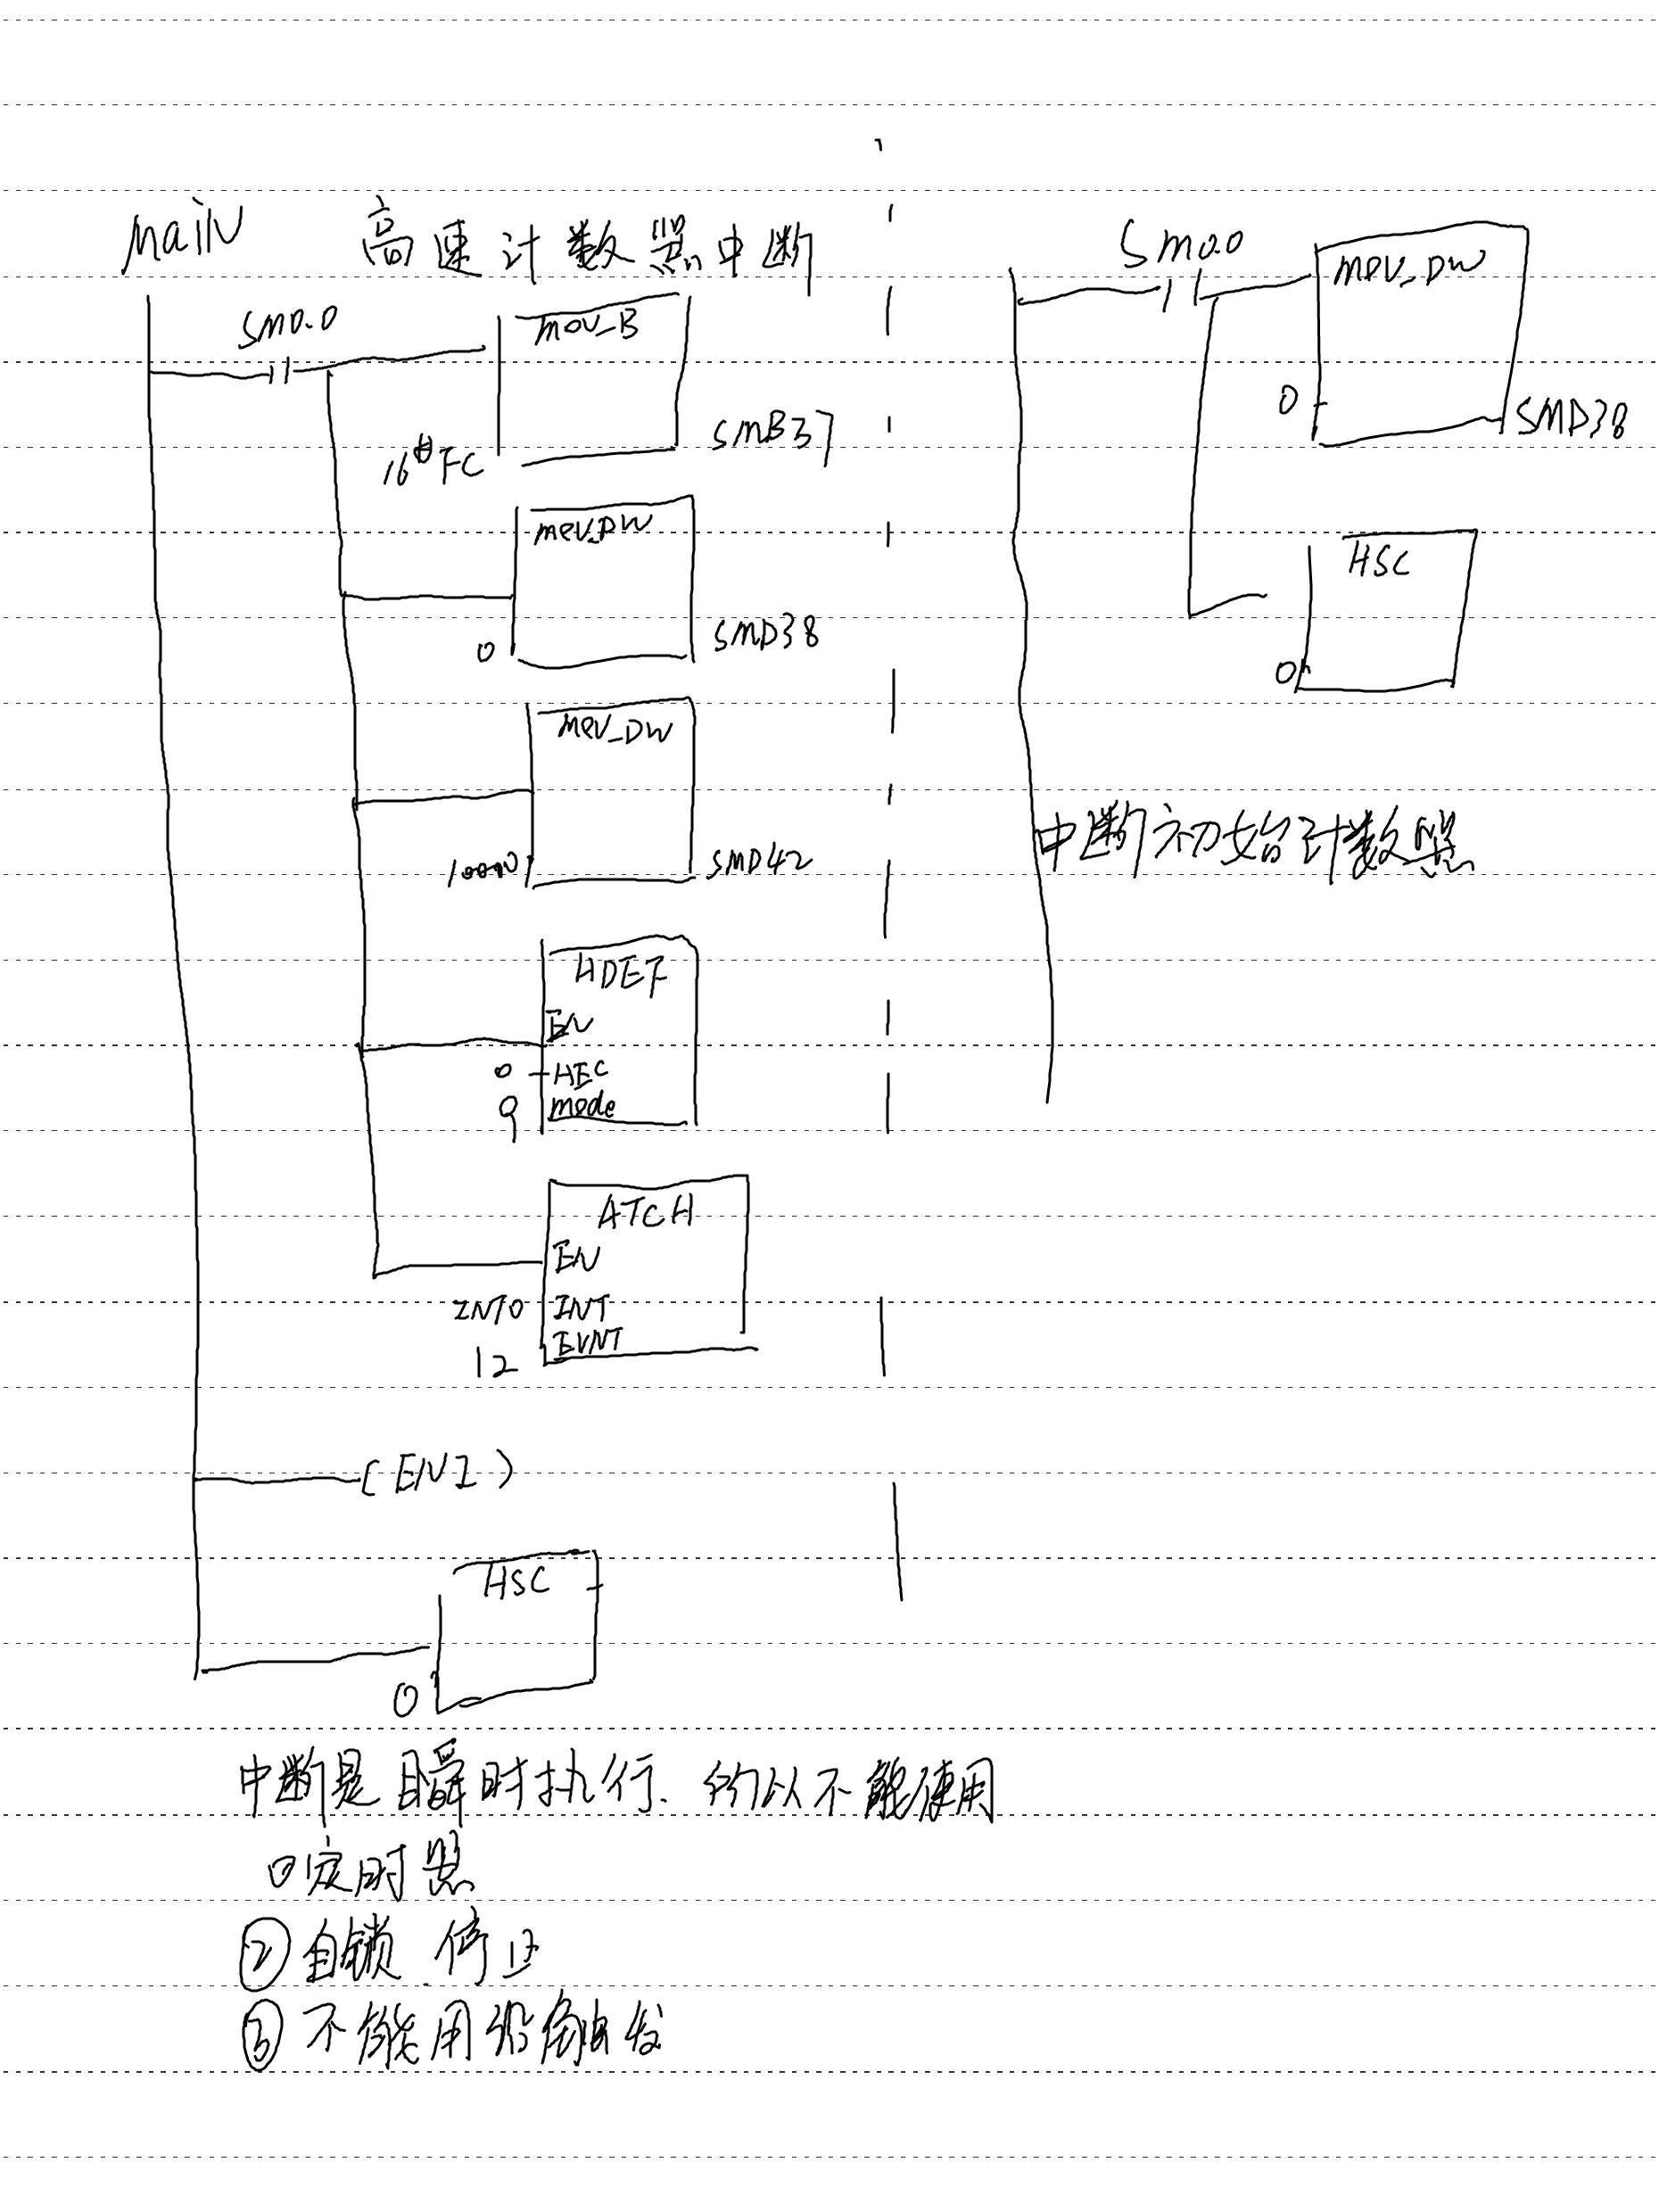 Main 高速计数器中断
SM0.0
MOV_B
16#FC
SMB37
MOV_DW
0
SMD38
MOV_DW
10000
SMD42
HDEF
EN
0 HEC
9 mode
ATCH
EN
INT0 INT
12 EVNT
(ENI)
HSC
0
中断是瞬时执行.所以不能使用
①定时器
②自锁.停止
③不能用沿触发
SM0.0
MOV_DW
0
SMD38
HSC
0
中断初始计数器